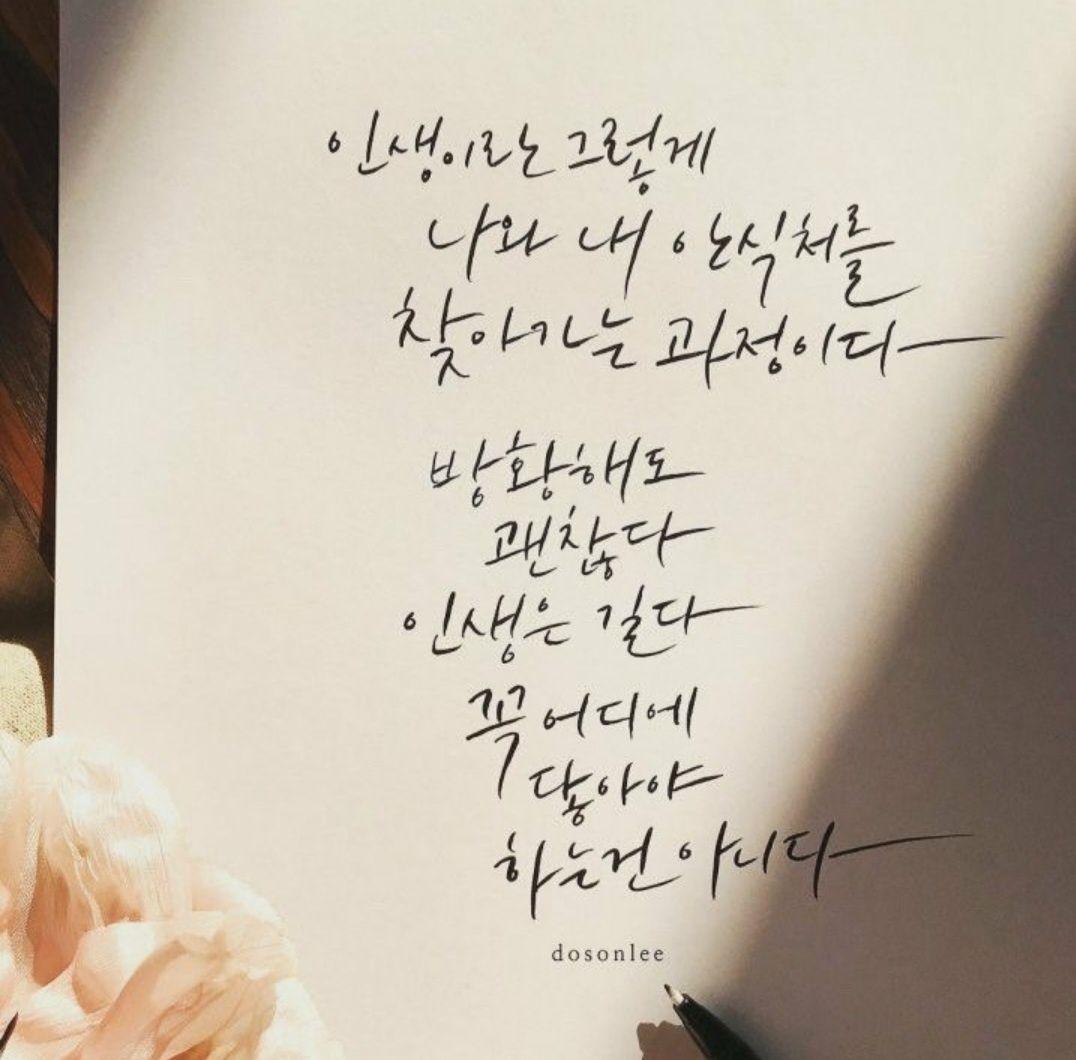 인생이란 그렇게
나와 내 안식처를
찾아가는 과정이다
방황해도
괜찮다
인생은 길다
꼭 어디에
닿아야
하는건 아니다
dosonlee